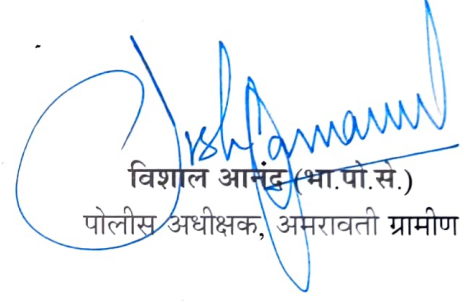 विशाल आनंद (भा.पो.से.)
पोलीस अधीक्षक, अमरावती ग्रामीण